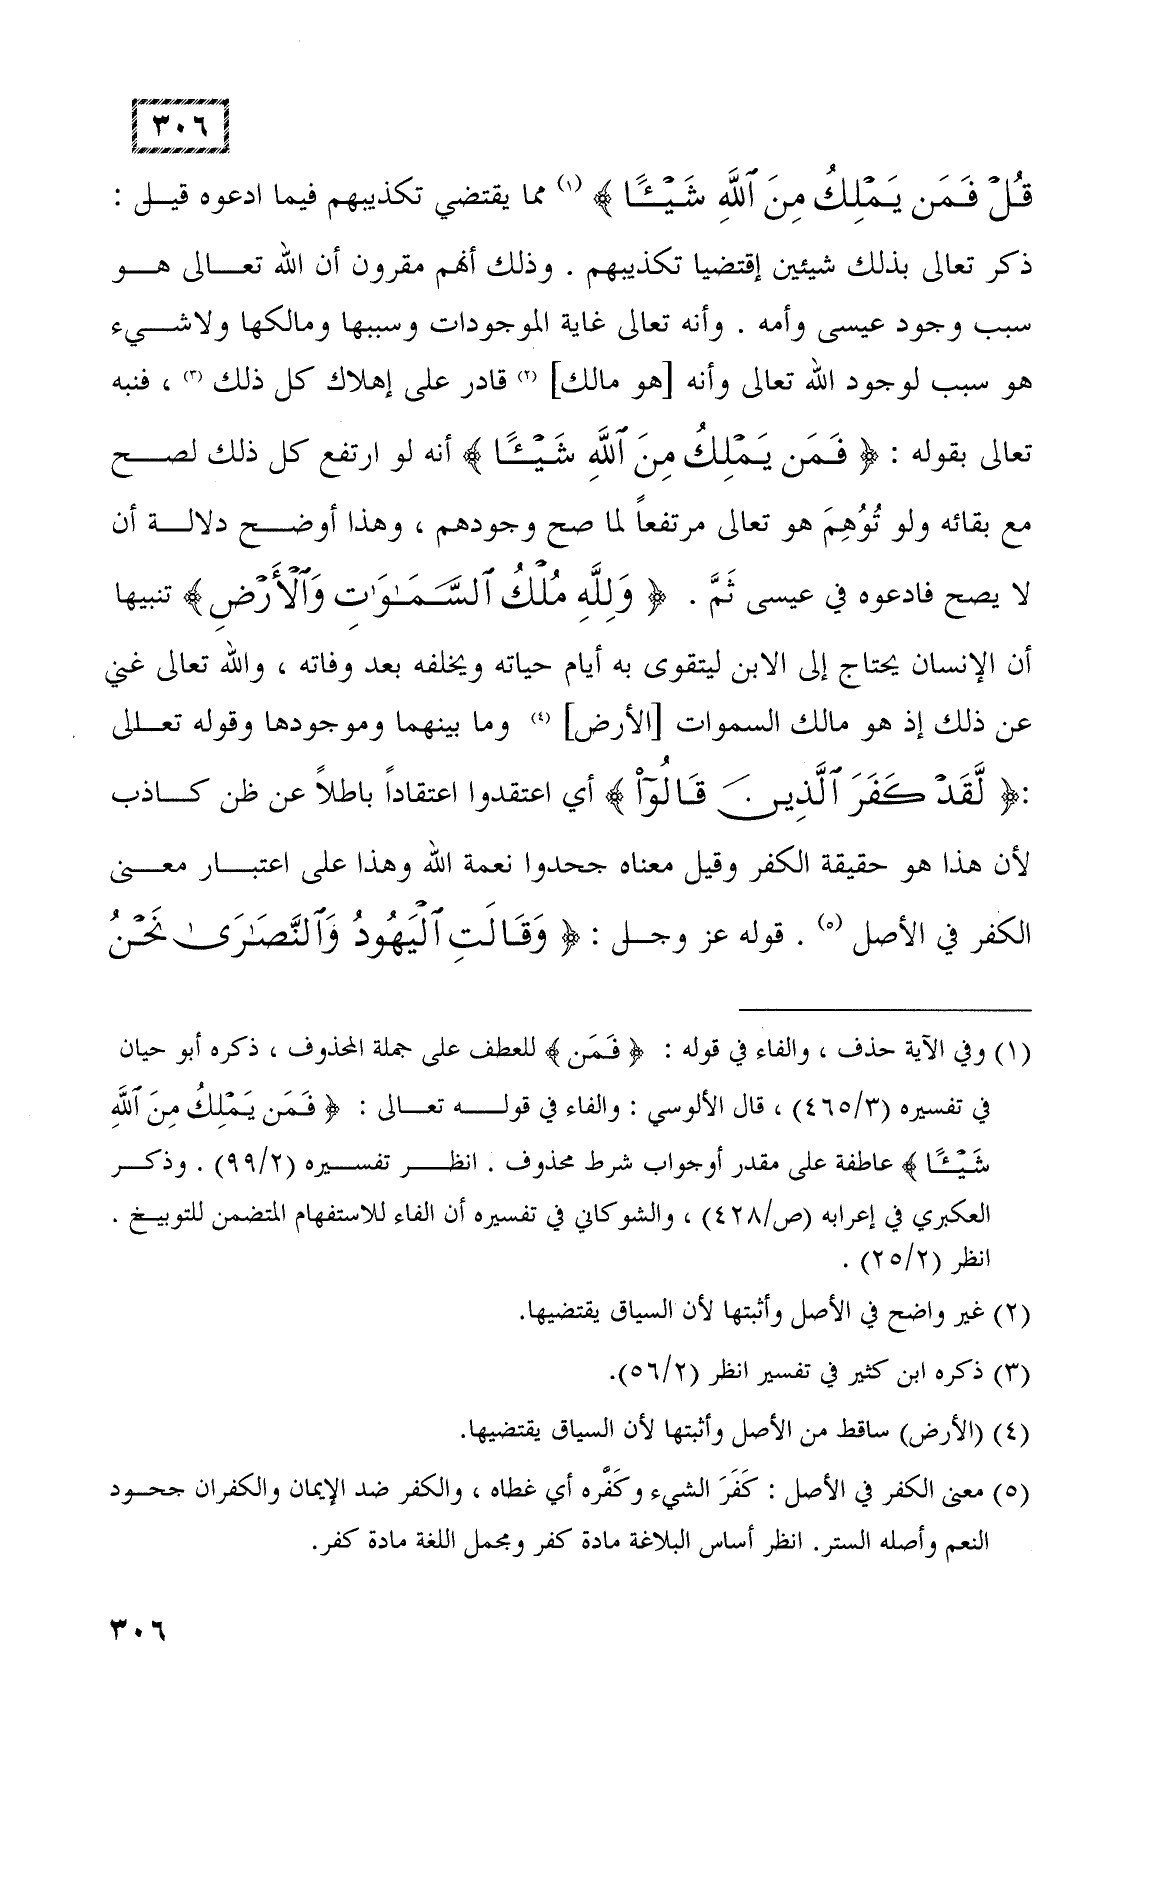 ٣٠٦
قُلۡ فَمَن يَمۡلِكُ مِنَ ٱللَّهِ شَيۡـًٔا ﴾ (١) مما يقتضي تكذيبهم فيما ادعوه قيل :
ذكر تعالى بذلك شيئين إقتضيا تكذيبهم . وذلك أنهم مقرون أن الله تعالى هو
سبب وجود عيسى وأمه . وأنه تعالى غاية الموجودات وسببها ومالكها ولاشيء
هو سبب لوجود الله تعالى وأنه [هو مالك] (٢) قادر على إهلاك كل ذلك (٣) ، فنبه
تعالى بقوله : ﴿ فَمَن يَمۡلِكُ مِنَ ٱللَّهِ شَيۡـًٔا ﴾ أنه لو ارتفع كل ذلك لصح
مع بقائه ولو تُوُهِمَ هو تعالى مرتفعاً لما صح وجودهم ، وهذا أوضح دلالة أن
لا يصح فادعوه في عيسى ثَمَّ . ﴿ وَلِلَّهِ مُلۡكُ ٱلسَّمَـٰوَٰتِ وَٱلۡأَرۡضِ ﴾ تنبيها
أن الإنسان يحتاج إلى الابن ليتقوى به أيام حياته ويخلفه بعد وفاته ، والله تعالى غني
عن ذلك إذ هو مالك السموات [الأرض] (٤) وما بينهما وموجودها وقوله تعالى
:﴿ لَّقَدۡ كَفَرَ ٱلَّذِينَ قَالُوٓاْ ﴾ أي اعتقدوا اعتقاداً باطلاً عن ظن كاذب
لأن هذا هو حقيقة الكفر وقيل معناه جحدوا نعمة الله وهذا على اعتبار معنى
الكفر في الأصل (٥) . قوله عز وجل : ﴿ وَقَالَتِ ٱلۡيَهُودُ وَٱلنَّصَـٰرَىٰ نَحۡنُ
(١) وفي الآية حذف ، والفاء في قوله : ﴿ فَمَن ﴾ للعطف على جملة المحذوف ، ذكره أبو حيان
في تفسيره (٤٦٥/٣) ، قال الألوسي : والفاء في قوله تعالى : ﴿ فَمَن يَمۡلِكُ مِنَ ٱللَّهِ
شَيۡـًٔا ﴾ عاطفة على مقدر أوجواب شرط محذوف . انظر تفسيره (٩٩/٢) . وذكر
العكبري في إعرابه (ص/٤٢٨) ، والشوكاني في تفسيره أن الفاء للاستفهام المتضمن للتوبيخ .
انظر (٢٥/٢) .
(٢) غير واضح في الأصل وأثبتها لأن السياق يقتضيها.
(٣) ذكره ابن كثير في تفسير انظر (٥٦/٢).
(٤) (الأرض) ساقط من الأصل وأثبتها لأن السياق يقتضيها.
(٥) معنى الكفر في الأصل : كَفَرَ الشيء وكَفَّره أي غطاه ، والكفر ضد الإيمان والكفران جحود
النعم وأصله الستر. انظر أساس البلاغة مادة كفر ومجمل اللغة مادة كفر.
٣٠٦